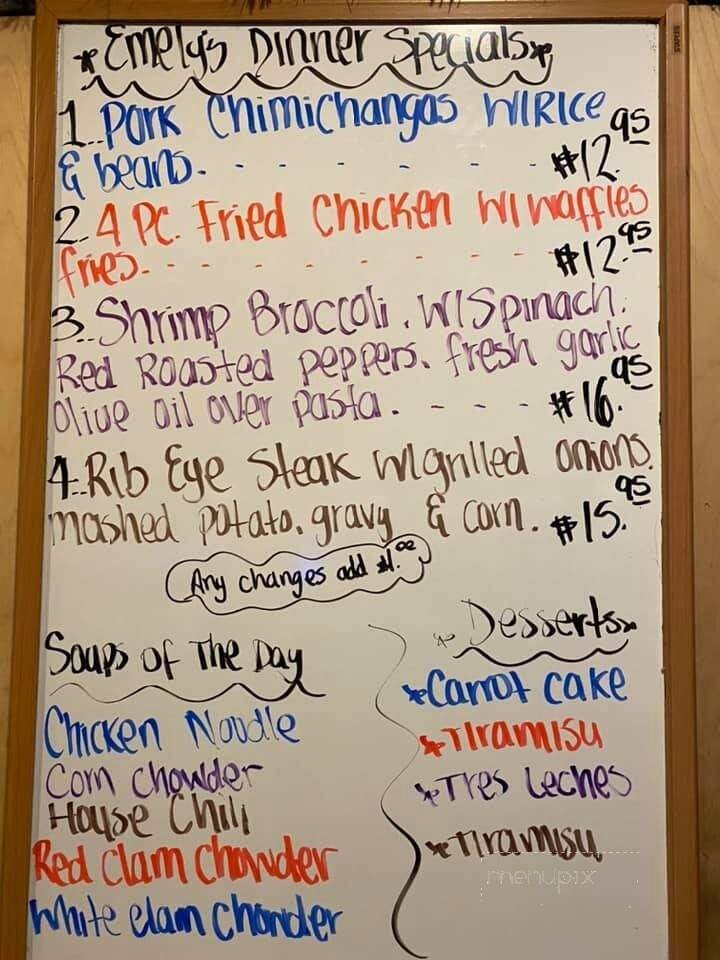 *Emely's Dinner Specials*
1..Pork Chimichangas W/Rice
& beans. - - - - - - - $12.95
2..4 PC. Fried Chicken W/Waffles
fries. - - - - - - - - $12.95
3..Shrimp Broccoli. W/Spinach.
Red Roasted peppers. fresh garlic
Olive oil over pasta. - - - $16.95
4..Rib Eye Steak w/grilled onions.
mashed potato. gravy & corn. $15.95
Any changes add $1.00
Soups of The Day
Chicken Noodle
Corn Chowder
House Chili
Red Clam Chowder
White clam Chowder
*Desserts*
*Carrot cake
*Tiramisu
*Tres Leches
*Tiramisu
menupix
STAPLES